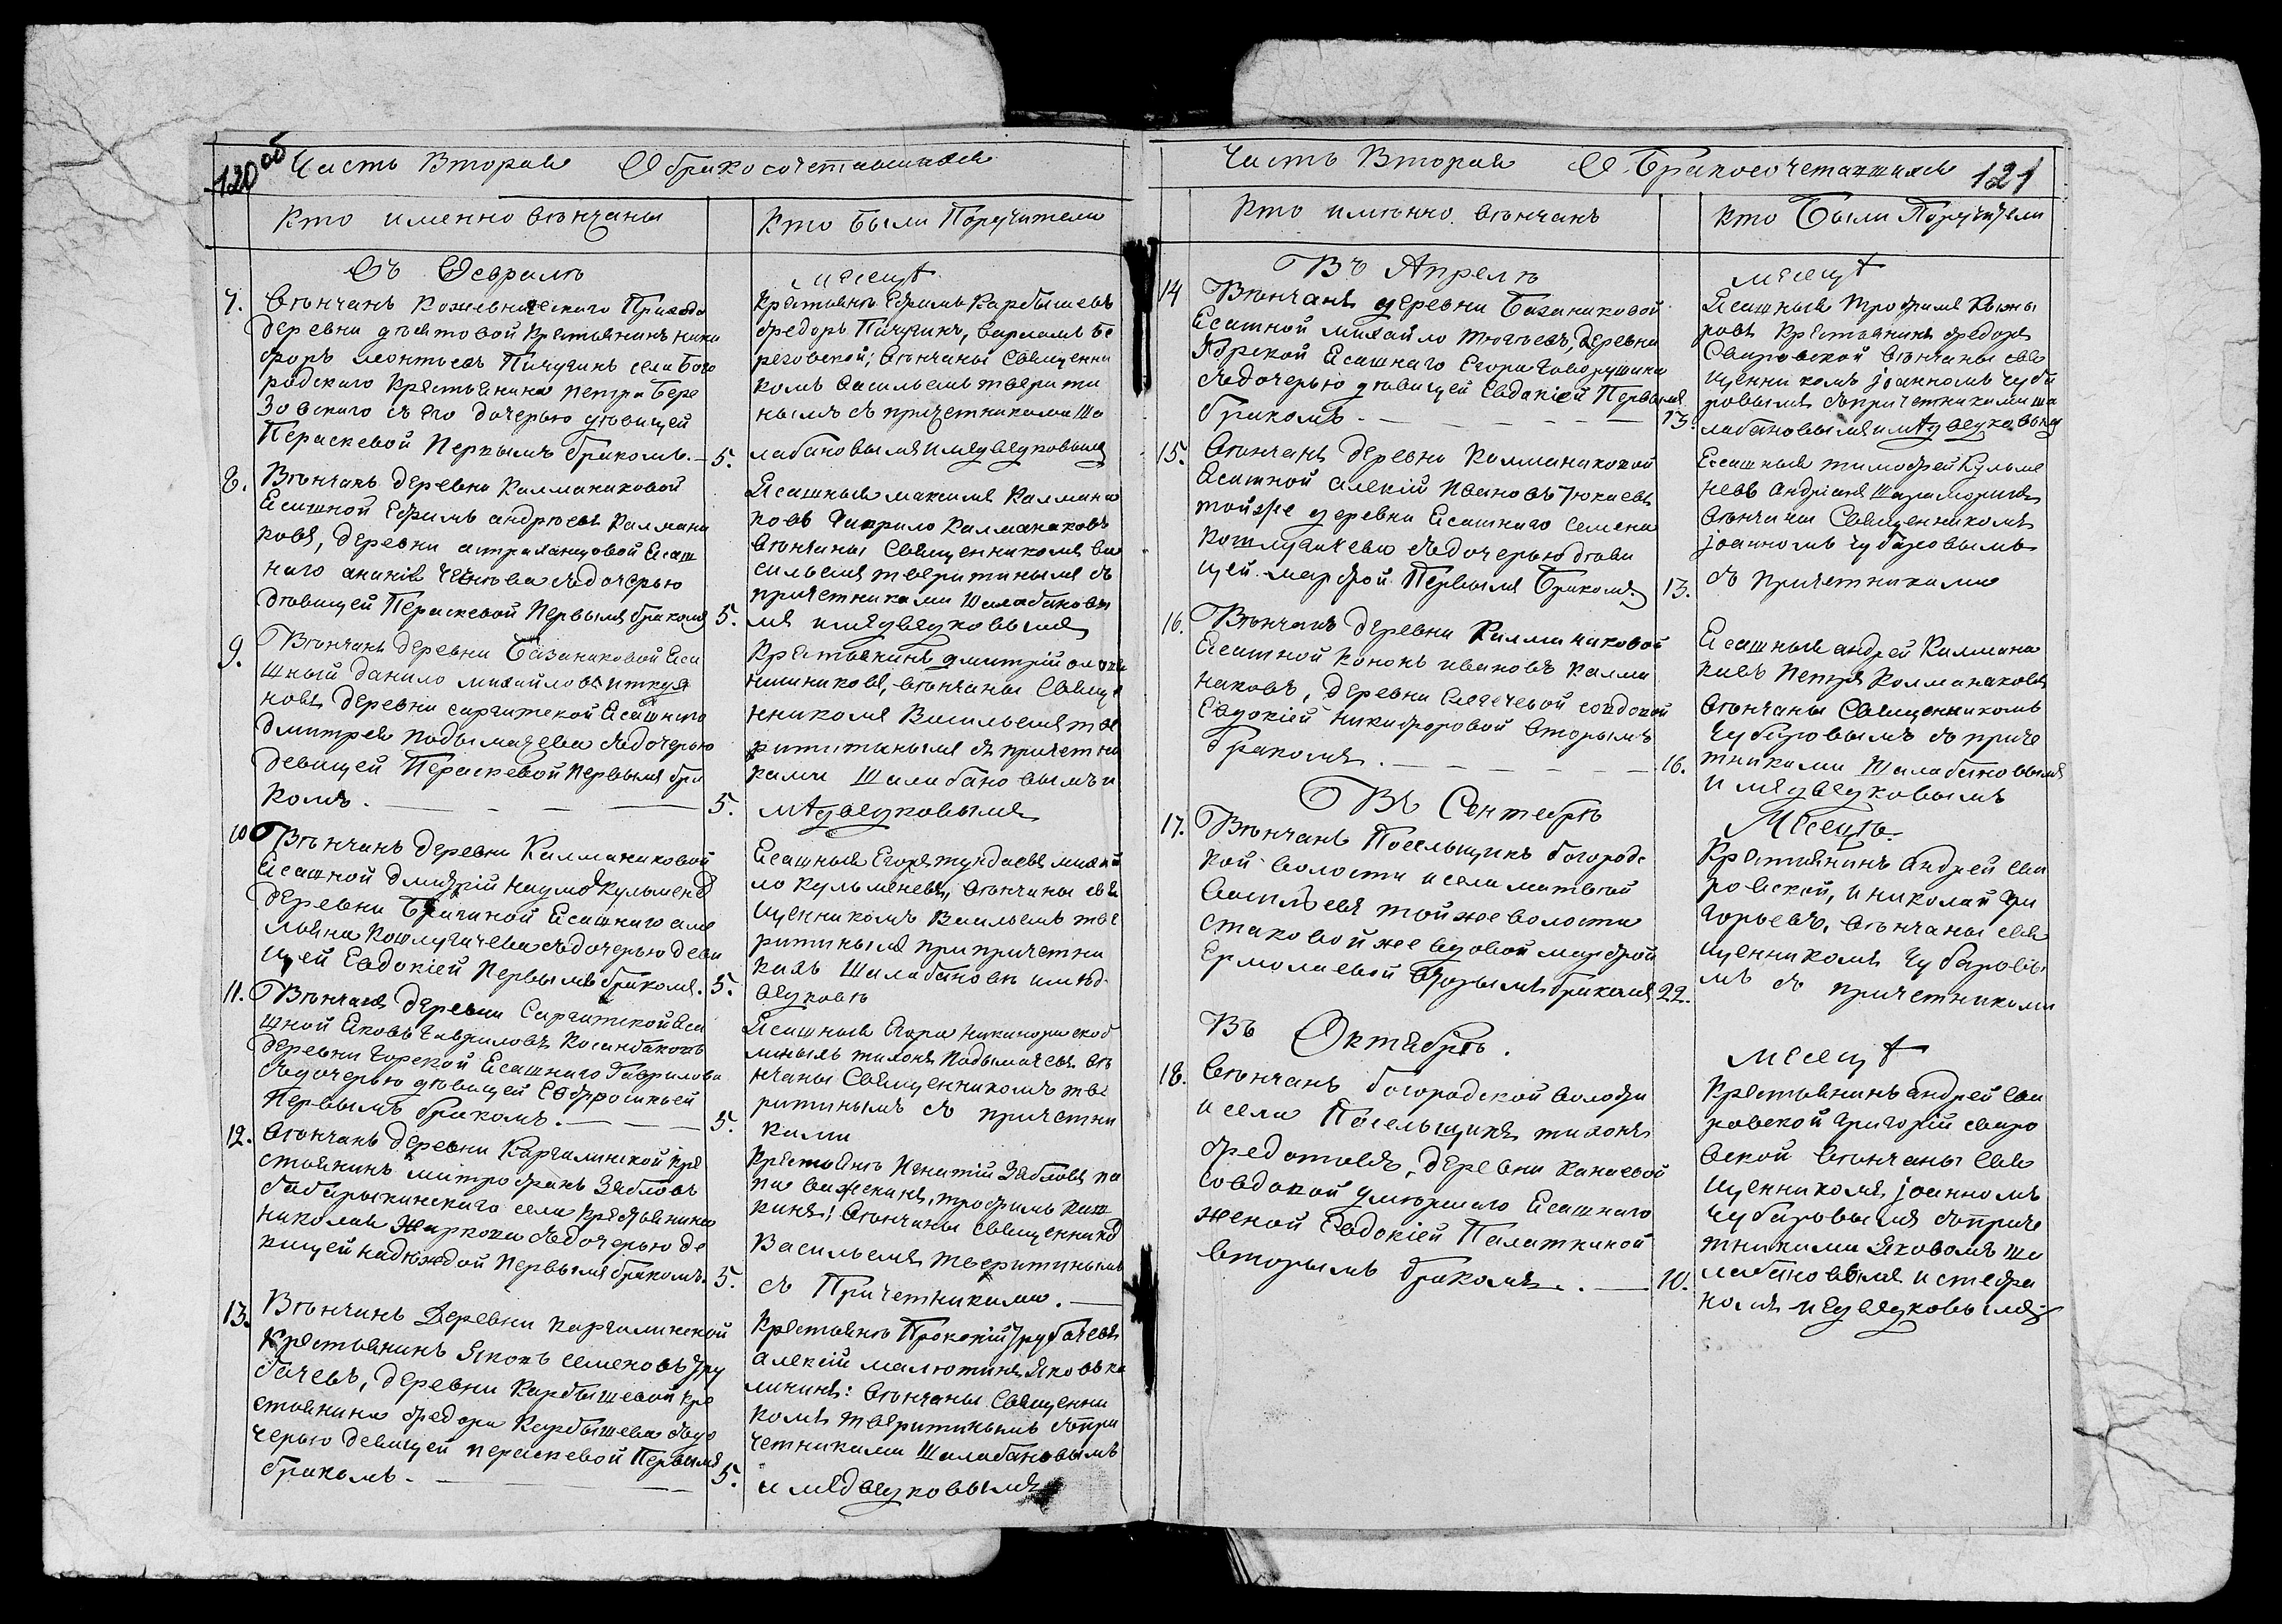 120 об
Часть Вторая О бракосочетавшихся
Кто именно венчаны
Кто были Поручители
Въ Феврале
месяце
7.
Венчанъ Кожевническаго Прихода
деревни Крестьянинъ ники
форъ леонтьевъ Пичугинъ села бого
родскаго Крестьянина петра Бере
зовскаго съ его дочерью девицей
Пераскевой Первымъ бракомъ. 5.
Крестьяне Ефимъ Карбышевъ
федоръ Пичугинъ, варламъ бе
резовской; венчаны Священни
комъ васильемъ твърити
нымъ съ причетниками Ша
лабановымъ и медведковымъ
8.
Венчанъ деревни Калмаковой
Ясашной Ефимъ андреевъ Калмака
ковъ, деревни астраханцовой Ясаш
наго анания съ дочерью
девицей Пераскевой Первымъ бракомъ 5.
Ясашные максимъ Калмака
ковъ Гаврило Калмаковъ
венчаны Священникомъ ва
сильемъ тверитинымъ съ
причетниками Шалабановы
мъ и медведковымъ
9.
Венчанъ деревни Базанаковой Яса
шный данило михайловъ иткуя
новъ деревни саргатской Ясашнаго
дмитрея подымачева съ дочерью
девицей Пераскевой Первымъ бра
комъ. 5.
Крестьянинъ дмитрий
венчаны Священ
нникомъ Васильемъ тве
ритинымъ съ причетни
ками Шалабановымъ и
медведковымъ
10
Венчанъ деревни Калмаковой
Ясашной дмитрий наумовъ кульменев
деревни Ясашнаго аме
льяна Кошлугачева съ дочерью деви
цей Евдокией Первымъ бракомъ. 5.
Ясашные Егоръ тундаевъ михай
ло кульменевъ, венчаны свя
щенникомъ Васильемъ тве
ритинымъ при причетни
кахъ Шалабанове и мед
ведкове
11.
Венчанъ деревни Саргатской Яса
шной Яковъ Гавриловъ
деревни Горской Ясашнаго Гаврилова
съ дочерью девицей Евфросиньей
Первымъ бракомъ. 5.
Ясашные Егоръ
тихонъ Подымачевъ ве
нчаны Священникомъ тве
ритинымъ съ причетни
ками
12.
Венчанъ деревни Каргалинской кре
стьянинъ митрофанъ Зябловъ
бабарыкинскаго села крестьянина
николая Жаркова съ дочерью де
вицей надеждой Первымъ бракомъ. 5.
Крестьяне Игнатий Зябловъ
трофимъ
венчаны священнико
Васильемъ тверитинымъ
съ Причетниками.
13.
Венчанъ Деревни каргалинской
Крестьянинъ Яковъ семеновъ Тру
бачевъ, деревни Карбышевой кре
стьянина федора Карбышева съ до
черью девицей пераскевой Первымъ
бракомъ. 5.
Крестьяне Прокопий Трубачевъ
алексий малютинъ Яковъ ка
личинъ: венчаны Священни
комъ тверитинымъ съ при
четниками Шалабановымъ
и медведковымъ
Часть Вторая О Бракосочетавшихся 121
Кто именно венчанъ
Кто Были Поручители
Въ Апреле
месяце
14
Венчанъ деревни Базанаковой
Ясашной михайло деревни
Горской Ясашнаго Егора Говорушкина
съ дочерью девицей Евдакией Первымъ
бракомъ. 13.
Ясашные трофимъ
Крестьянинъ федоръ
Сваровской венчаны свя
щенникомъ иоанномъ чуба
ровымъ съ причетниками ша
лабановымъ и медведковымъ
15.
Венчанъ деревни Калмаковой
Ясашной алексий Ивановъ Тюкаевъ
той же деревни Ясашнаго семена
кошлугачева съ дочерью деви
цей марфой Первымъ бракомъ 13.
Ясашные тимофей Кульме
невъ андриянъ
венчаны Священникомъ
иоанномъ чубаровымъ
съ причетниками
16.
Венчанъ деревни Калмаковой
Ясашной кононъ ивановъ Калма
наковъ, деревни солдаткой
Евдокией никифоровой вторымъ
бракомъ. 16.
Ясашные андрей Калмана
ковъ петръ Калманаковъ
венчаны Священникомъ
чубаровымъ съ приче
тниками Шалабановымъ
и медведковымъ
Въ Сентябре
Месяце
17.
Венчанъ Посельщикъ богородс
кой волости и села матвей
васильевъ той же волости
стаковой же вдовой марфой
Ермолаевой вторымъ бракомъ 22.
Крестьянинъ андрей сва
ровской, и николай гри
горьевъ. венчаны свя
щенникомъ Чубаровы
мъ съ причетниками
Въ Октябре.
месяце
18.
Венчанъ богородской волости
и села Посельщикъ тихонъ
федотовъ, деревни Канаевой
со вдовой умершаго Ясашнаго
женой Евдокией Палаткиной
вторымъ бракомъ. 10.
Крестьянинъ андрей сва
ровской григорий сваро
вской венчаны свя
щенникомъ иоанномъ
чубаровымъ съ приче
тниками Яковомъ ша
лабановымъ и стефа
номъ медведковымъ